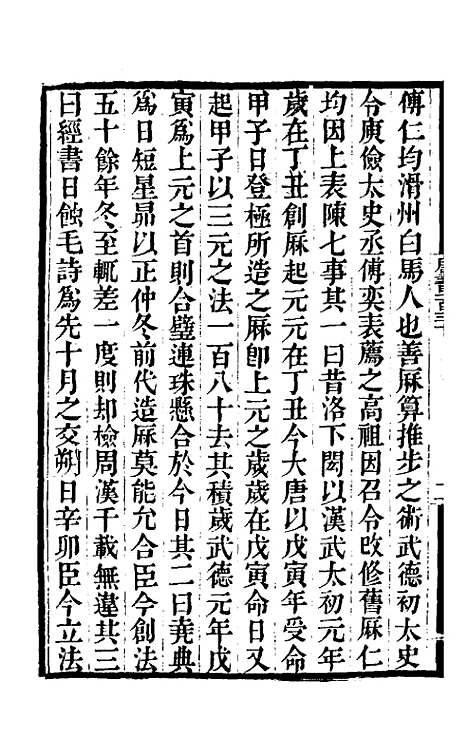 傅仁均滑州白馬人也善厤算推步之術武德初太史
令庾儉太史丞傅奕表薦之高祖因召令改修舊厤仁
均因上表陳七事其一曰昔洛下閎以漢武太初元年
歲在丁丑創厤起元元在丁丑今大唐以戊寅年受命
甲子日登極所造之厤卽上元之歲歲在戊寅命日又
起甲子以三元之法一百八十去其積歲武德元年戊
寅爲上元之首則合璧連珠懸合於今日其二曰堯典
爲日短星昴以正仲冬前代造厤莫能允合臣今創法
五十餘年冬至輒差一度則却檢周漢千載無違其三
曰經書日蝕毛詩爲先十月之交朔日辛卯臣今立法